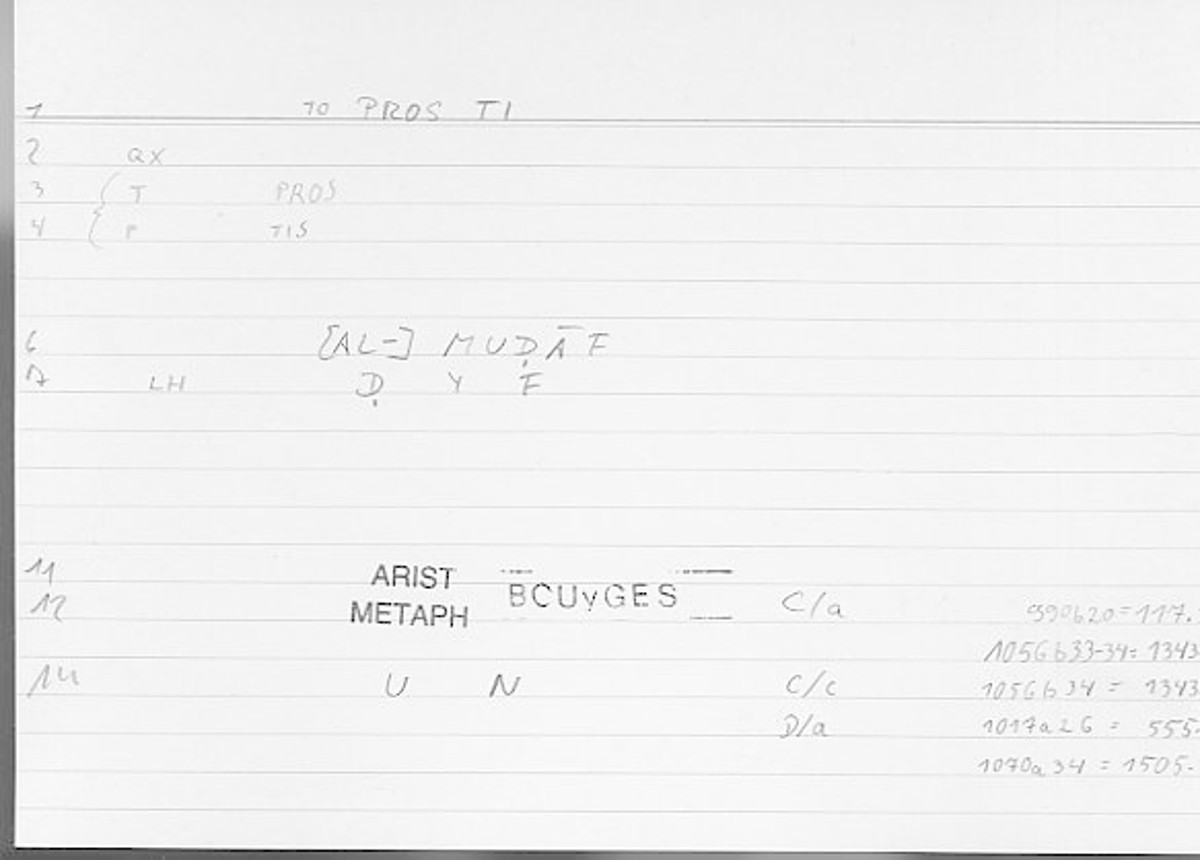 1 TO PROS TI
2 QX
3 T PROS
4 P TIS
6 [AL-] MUḌĀF
7 LH Ḍ Y F
11 ARIST BCUvGES
12 METAPH C/a 990b20=117.
1056b33-34= 1343
14 U N C/c 1056b34 = 1343
D/a 1017a26 = 555.
1070a34 = 1505-